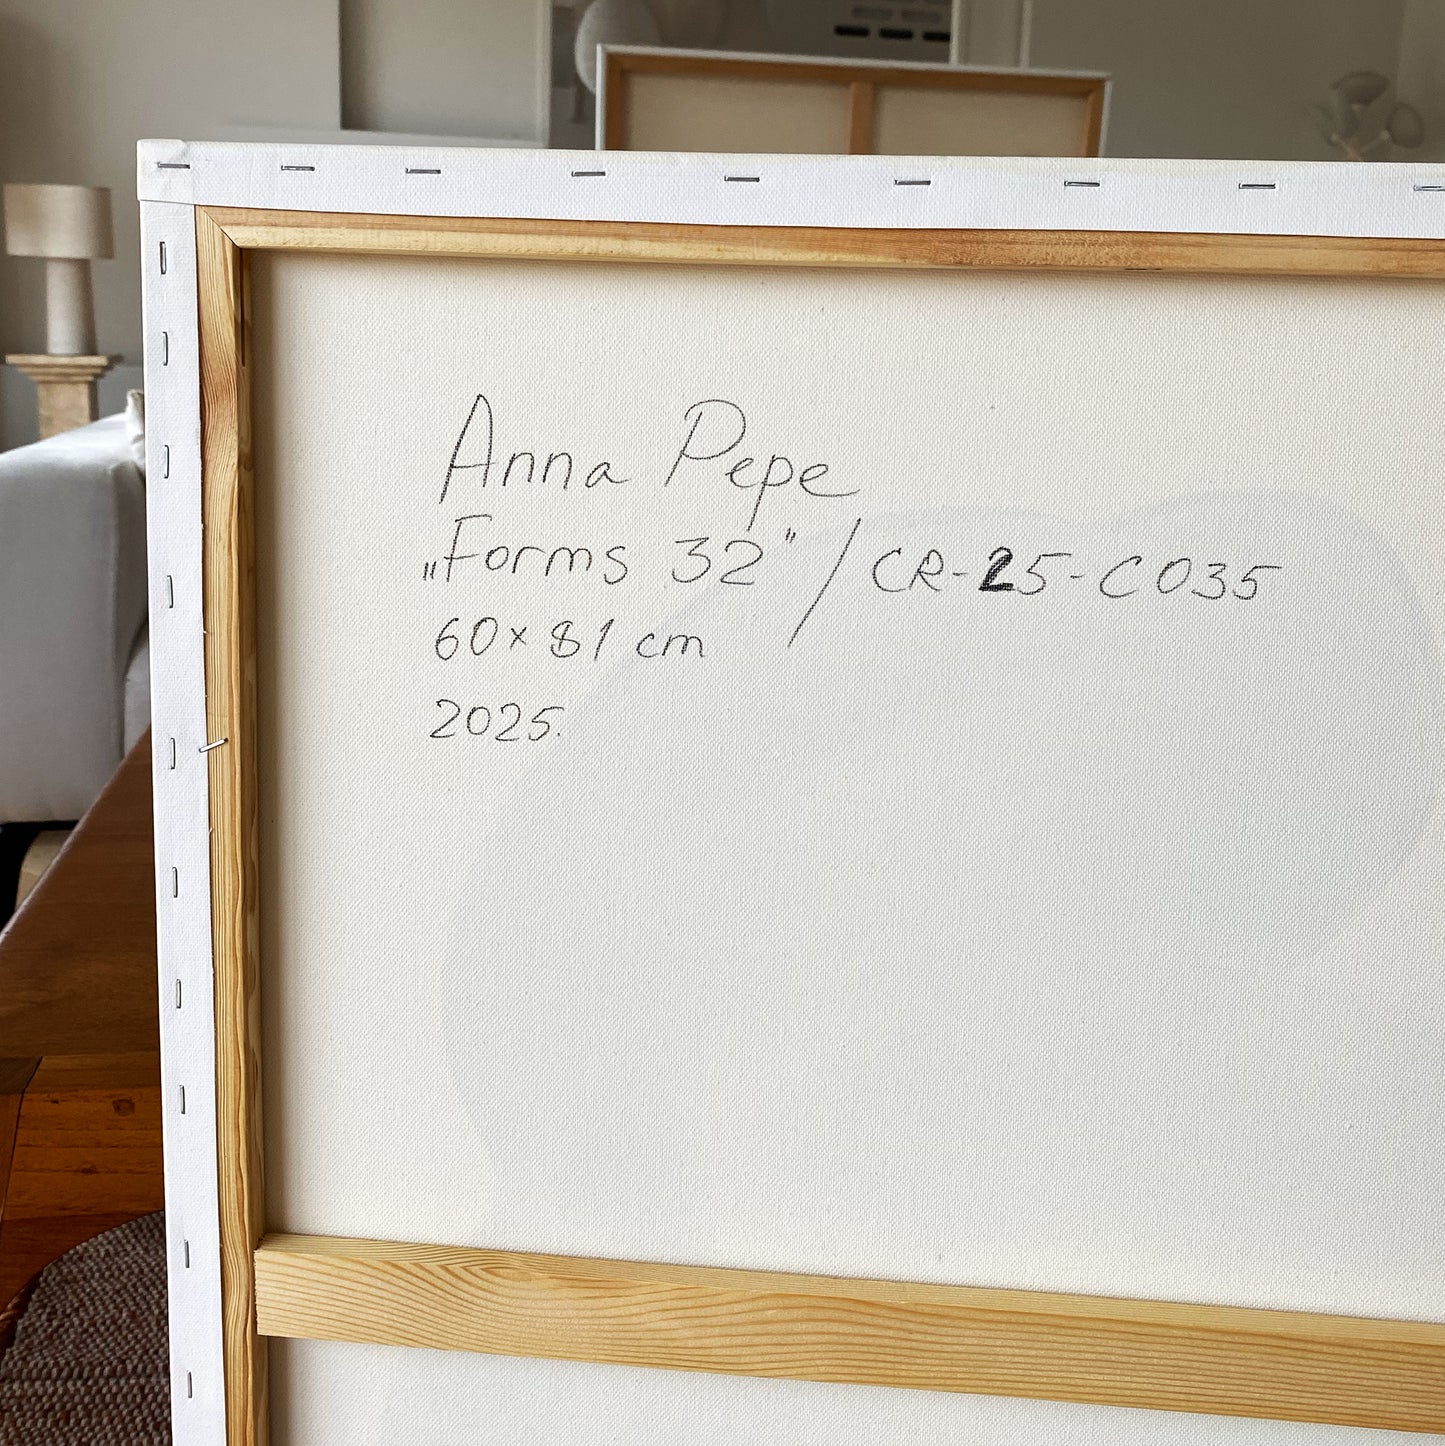 Anna Pepe
„Forms 32" / CR-25-C035
60x81 cm
2025.